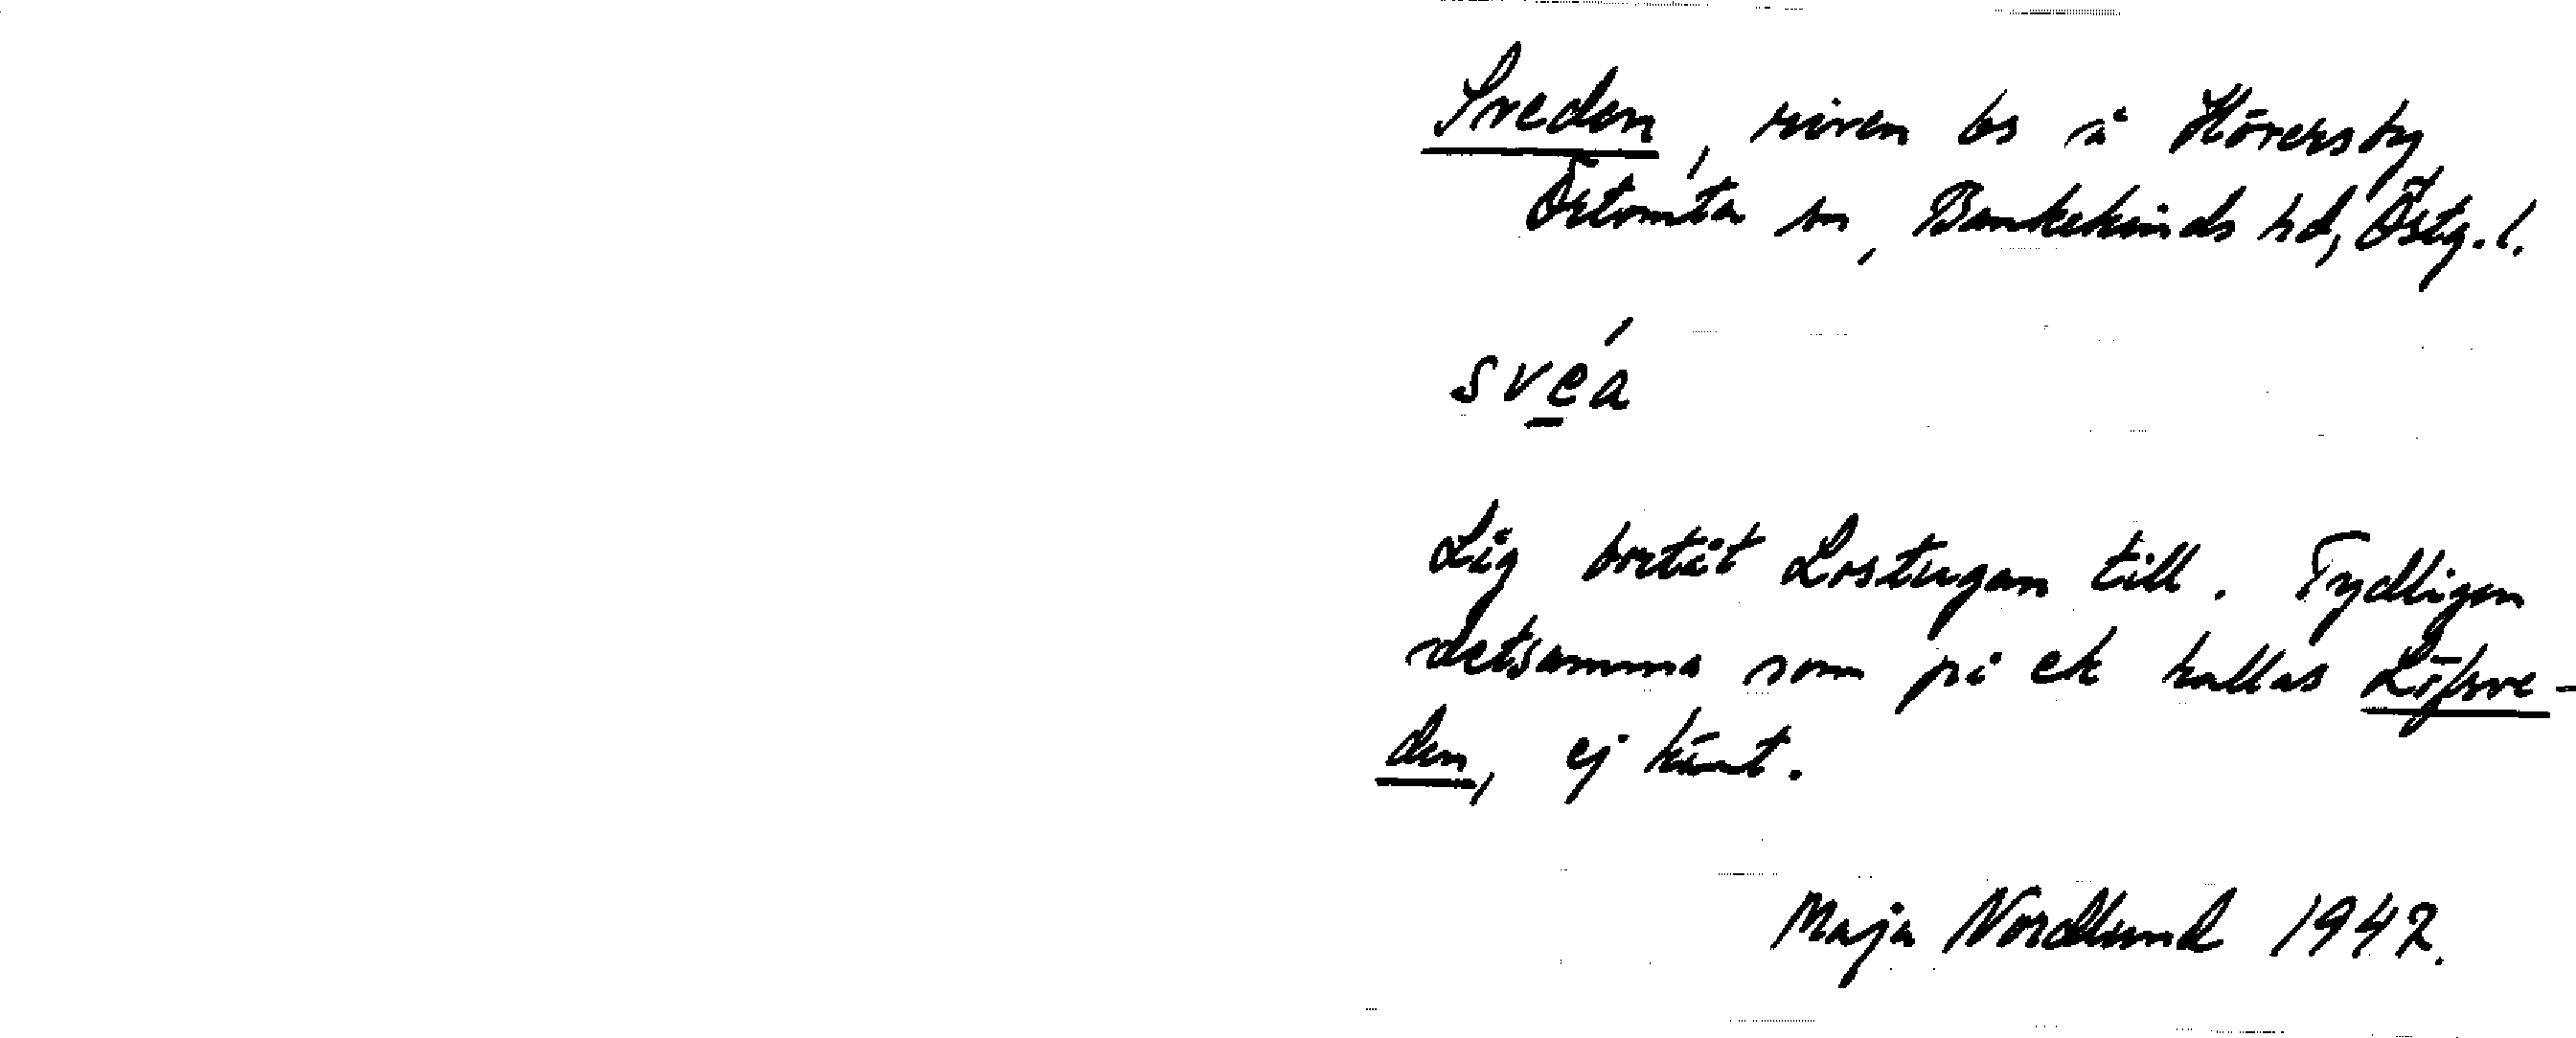 Sveden, riven bs å Höversby,
Örtomta sn, Bankekinds hd, Östg. l.
svéa
Låg bortåt Lostugan till. Tydligen
detsamma som på ek kallas Löfsve-
den, ej känt.
Maja Nordlund 1942.